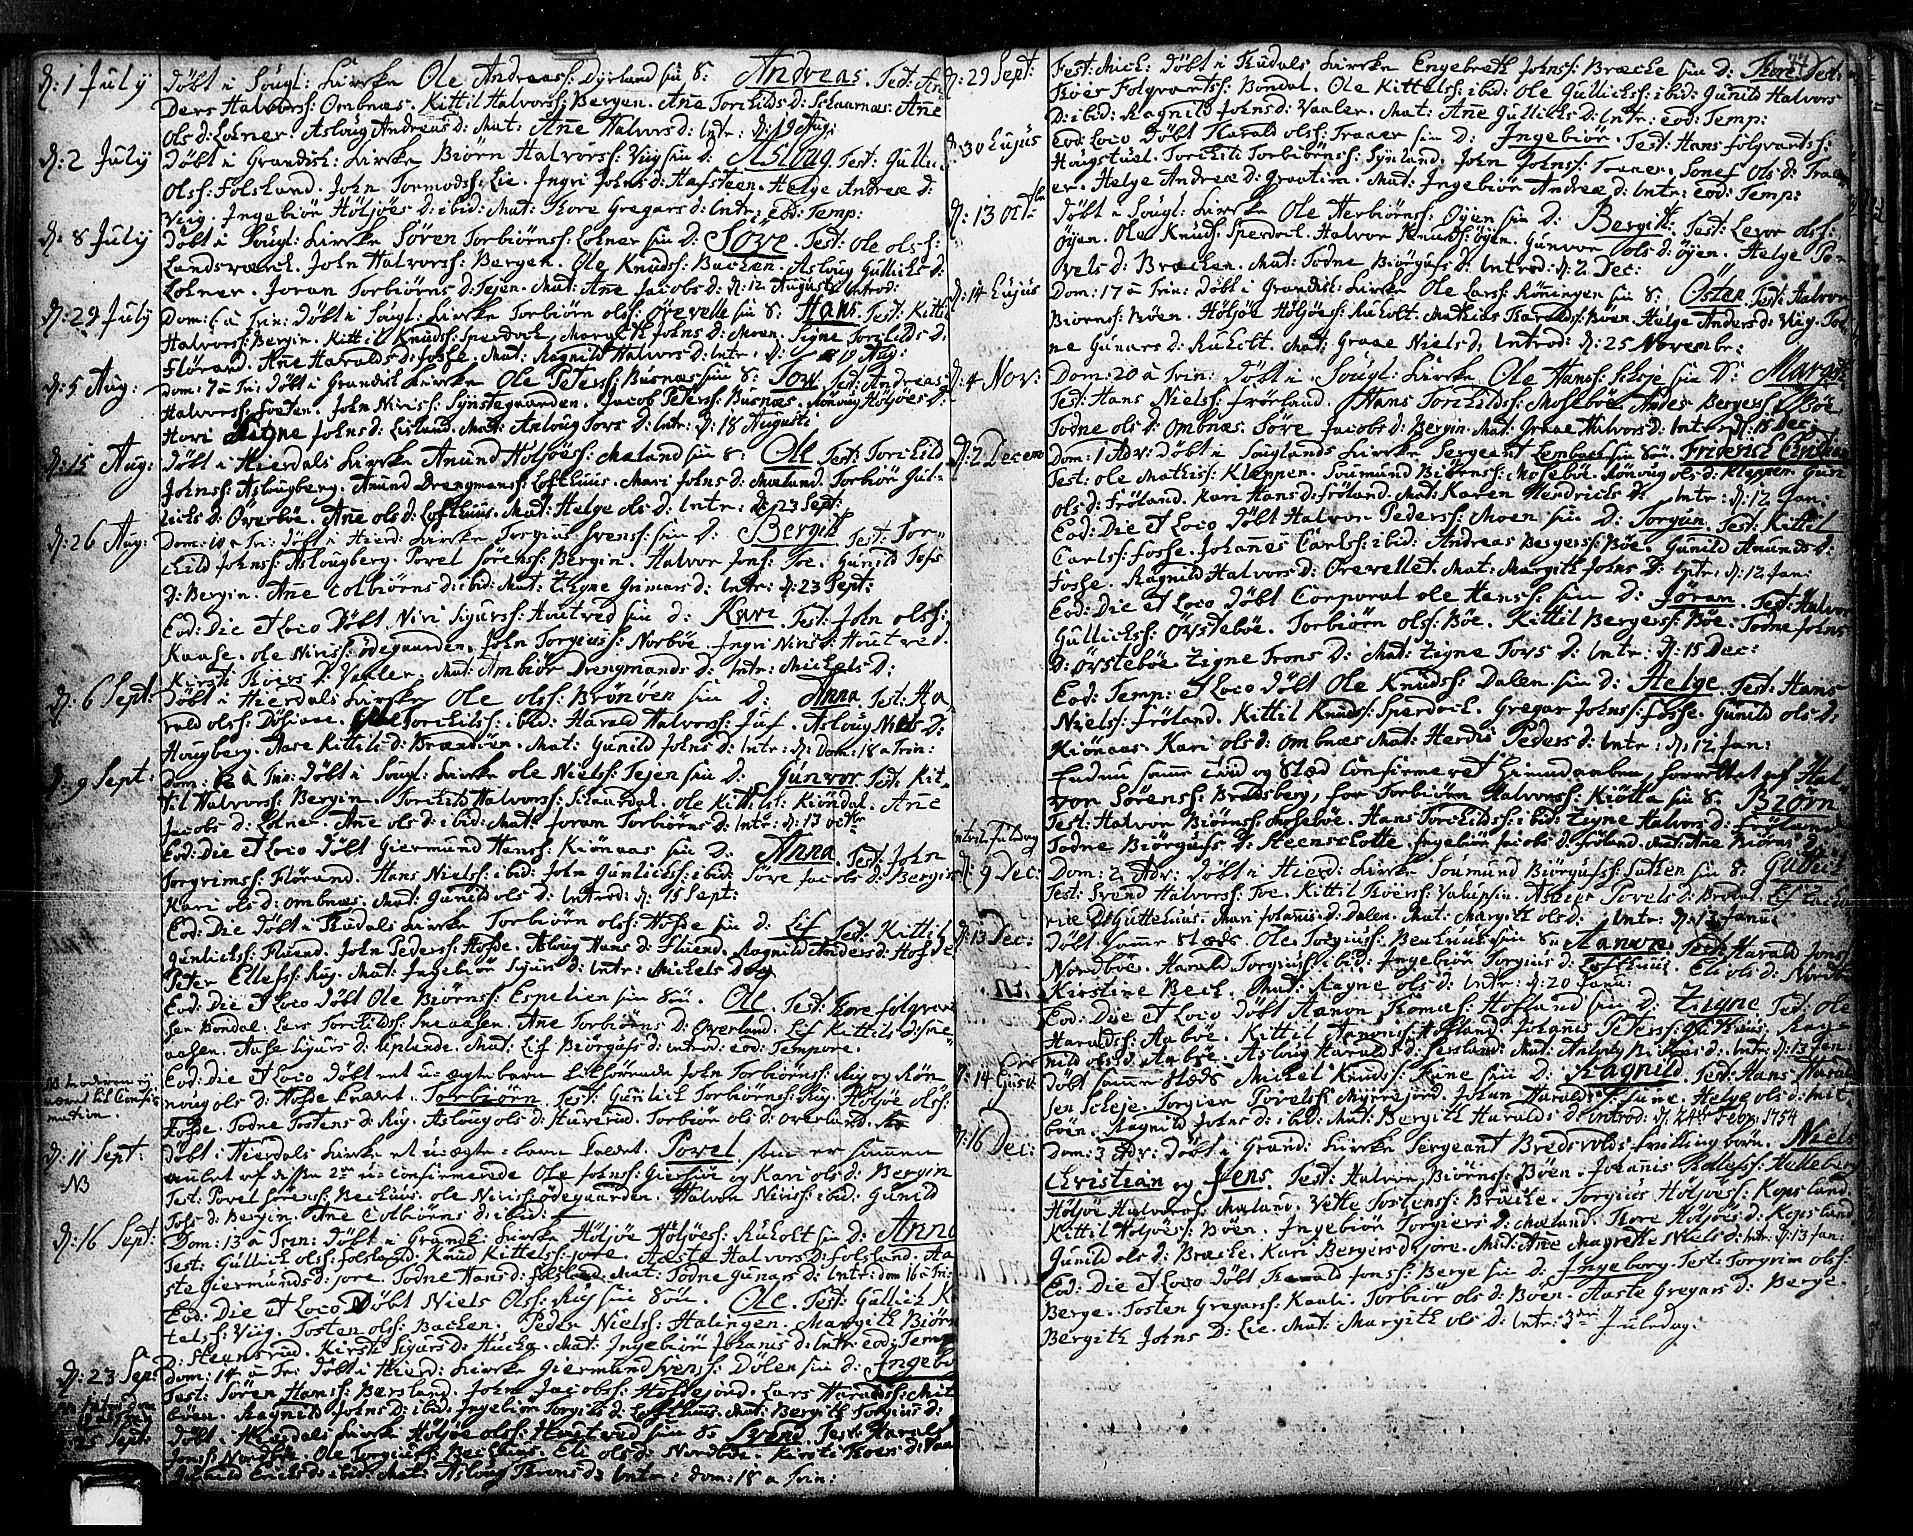 D: 1 July
Döbt i Sougl: Kircke Ole Andreass: Dyrland sin S: Andreas. Test: An
ders Halvorss: Ombnæs. Kittil Halvorss: Bergen. Anne Torchilds d: Skaarnæs. Anne
Ols d: Lokner. Aslong Andreas d: Mat: Anne Halvors d: Intr: D: 19 Aug:
D: 2 July
Döbt i Grandsh: Kircke Biörn Halvorss: Viig sin d: Aslong. Test: Gullic
Olss: Folsland. John Tormods: Lie. Ingri Johns d: Hafsteen. Helge Andreæ d:
Viig. Ingebiör Höljöes d: ibid: Mat: Thore Gregars d: Intr: Eod: Temp:
D: 8 July
Döbt i Sougl: Kircke Sören Torbiörns: Lokner sin d: Söve. Test: Ole ols:
Landsværck. John Halvorss: Bergen. Ole Knuds: Bachen. Aslong Gullichs d:
Lokner. Joran Torbiörns d: Tejen. Mat: Anne Jacobs d: D: 12 August Introd:
D: 29 July
Dom: 6 a Trin: Döbt i Sougl: Kircke Torbiörn olss: Örevelle sin S: Hans. Test: Kittil
Halvorss: Bergin. Kittil Knuds: Sperdoch. Margreth Johns d: Moen. Signe Torchilds d:
Flörand. Anne Haralds d: Fosse. Mat: Ragnild Halvors d: Intr: D: 19 Aug:
D: 5 Aug:
Dom: 7 a Tri: Döbt i Grandsh Kircke Ole Peters: Busnæs sin S: Tov. Test: Andreas
Halvorss: Foeten. John Niriss: Synstegaarden. Jacob Peters: Busnæs. Rönvig Höljöes d:
Hovi. Signe Johns d: Lisland. Mat: Aslong Tovs d: Intr: D: 18 Augusti
D: 15 Aug:
Döbt i Hierdals Kircke Anund Höljöess: Mæland sin S: Ole. Test: Torchild
Johnss: Aslougberg. Anund Drengmans: Lofthuus. Mari Johns d: Mæland. Torbiör Gul-
lichs d: Överböe. Anne ols d: Lofthuus. Mat: Helge ols d: Intr: D: 23 Sept:
D: 26 Aug:
Dom: 10 a Tri: Döbt i Hierd: Kircke Torgius Svens: sin d: Bergit. Test: Tor-
child Johnss: Aslougberg. Povel Sörens: Bergin. Halvor Jons: Foe. Gunild Tofs
d: Bergin. Anne Colbiörns d: ibid: Mat: Zigne Gunnars d: Intr: D: 23 Sept:
Eod: Die et Loco Döbt Niri Sigurs: Houtved sin d: Kari. Test: John olss:
Kaase. Ole Niriss: Ödegaarden. John Torgiuss: Norböe. Ingri Niris d: Houtved.
Kirsti Roers d: Vaaler. Mat: Ambiör Drengmands d: Intr: Michels D:
D: 6 Sept:
Döbt i Hierdals Kircke Ole olss: Brönöen sin d: Anna. Test: Ha
rald olss: Torchils: ibid: Harald Halvorss: Juf. Aslong Niels d:
Hougberg. Aase Kittils d: Brændöen. Mat: Gunild Johns d: Intr: D: Dom: 18 a Trin:
D: 9 Sept:
Dom: 12 a Trin: Döbt i Sougl: Kircke Ole Nielss: Tejen sin d: Gunvor. Test: Kit-
til Halvorss: Bergin. Torchild Halvorss: Skaardal. Ole Kittils: Kiöndal. Anne
Jacobs d: Lokner. Anne ols d: ibid: Mat: Joran Torbiörns d: Intr: D: 13 octbr
Eod: Die et Loco Döbt Giermund Hans: Kiönaas sin d: Anna. Test: John
Torgrims: Flörand. Hans Niels: ibid: John Gunlichs: ibid: Söve Jacobs d: Bergin
Kari ols d: Ombnæs. Mat: Gunild ols d: Introd: D: 15 Sept:
Eod: Die Döbt i Tudals Kircke Torbiörn olss: Hofde sin d: Lif. Test: Kittil
Gunlichs: Fluend. John Peders: Hofde. Aslong Hans d: Fluend. Ragnild Anders d: Hofde
Peter Ellefs: Ruy. Mat: Ingebiör Sigurs d: Intr: Michels Dag
Eod: Die et Loco Döbt Ole Biörns: Espelien sin Sön. Ole. Test: Thore folgvart
sen Bondal. Lars Torchilds: Sneaasen. Anne Torbiörns d: Overland. Lif Kittils d: Sne
aasen. Aase Sigurs d: Uplande. Mat: Lif Biörgufs d: Introd: eod: Tempore.
NB Moderen ej
været til Confir
mation.
Eod: Die et Loco Döbt et u-ægte barn tilhörende John Torbiörns: Ruy og Rön
noug ols d: Hofde kaldet Torbiörn. Test: Gunlich Torbiörns: Ruy. Höljöe olss:
Fosse. Todne Tostens d: Ruy. Aslong ols d: Huverud. Torbiör ols d: Overland.
D: 11 Sept:
NB
Döbt i Hierdals Kircke et u-ægte barn kaldet Povel som er sammen
aulet af disse 2de u-confirmerede Ole Johns: og Kari ols d: Bergin
Test: Povel Sörens: Bechuus. Ole Niriss: Ödegaarden. Halvor Niriss: ibid: Gunild
Tofs d: Bergin. Anne Colbiörns d: ibid:
D: 16 Sept:
Dom: 13 a Trin: Döbt i Grandsh: Kircke Höljöe Höljöess: Ruholt sin d: Anna
Test: Gullich olss: Folsland. Knud Kittels: Jore. Aaste Halvors d: Folsland. Aa
ste Giermunds d: Jore. Todne Hans d: Folsland. Mat: Todne Gunars d: Intr: dom 16 a Tri:
Eod: Die et Loco Döbt Niels Olss: Ruy sin Sön. Ole. Test: Gullich K
talss: Viig. Tosten olss: Bachen. Peder Niels: Halingen. Margith Biörn
d: Steensrud. Kirsti Sigurs d: Hucha. Mat: Ingebiör Johanis d: Intr: eod: Temp
D: 23 Sep:
Dom: 14 a Tri: Döbt i Hierd: Kircke Giermund Svens: Dölen sin d: Ingebor
Test: Sören Hans: Bersland. John Jacobss: Holtejord. Lars Haralds: Mit
böen. Ragnild Johns d: ibid: Ingebiör Torgius d: Lofthuus. Mat: Bergith Torgius d:
25 Sept:
Döbt i Hierdals Kircke Höljöe olss: Houtved sin S: Svend. Test: Harald
Jons: Nordböe. Ole Torgius: Bechuus. Eli ols d: Nordböe. Kirsti Roers d: Vaa
Gunild Erichs d: ibid: Mat: Aslong Throns d: Intr: dom: 18 a Trin:
74
D: 29 Sept:
Fest: Mich: Döbt i Tudals Kircke Engebreth Johns: Bræche sin d: Thore. Test:
Roer Folgvarts: Bondal. Ole Kittels: ibid: Ole Gullichs: ibid: Gunild Halvors
D: ibid: Ragnild Johns d: Vaaler. Mat: Anne Gullichs d: Intr: eod: Temp:
D: 30 Eujus
Eod: Loco Döbt Harald olss: Traaer sin d: Ingebiör. Test: Hans Folgvards:
Hougstuel. Torchild Torbiörns: Synland. John Johns: Traaer. Sonef Ols d: Traa
er. Helge Andreæ d: Graatim. Mat: Ingebiör Andreæ d: Intr: eod: Temp:
D: 13 Octbr
Döbt i Sougl: Kircke Ole Herbiörns: Öyen sin d: Bergith. Test: Levor olss:
Öyen. Ole Knuds: Sperdoch. Halvor Knuds: Öyen. Gunvor ols d: Öyen. Helge Po-
vels d: Bræcken. Mat: Todne Biörgufs d: Introd: D: 2 Dec:
D: 14 Eujus
Dom: 17 a Trin: Döbt i Grandsh: Kircke Ole Lars: Röningen sin S: Östen. Test: Halvor
Biörns: Böen. Höljöe Höljöes: Ruholt. Mathias Haralds: Böen. Helge Anders d: Viig. Tod
ne Gunars d: Ruholt. Mat: Graae Niels d: Introd: D: 25 Novembr:
D: 4 Nov:
Dom: 20 a Trin: Döbt i Sougl: Kircke Ole Hans: Skeje sin d: Margit
Test: Hans Niels: Frörland. Hans Torchilds: Moseböe. Andes Bergers: Böe
Todne ols d: Ombnæs. Söve Jacobs d: Bergin. Mat: Graae Halvors d: Intr: D: 15 Dec:
D: 2 Decem
Dom: 1 Adv: Döbt i Souglands Kircke Sergeant Lembach sin Sön. Friderich Christian
Test: Ole Mathis: Kleppen. Sormund Biörns: Moseböe. Rönvig ols d: Kleppen. Guri
ols d: Fröland. Kari Hans d: Fröland. Mat: Karen Hendrichs d: Intr: D: 12 Jan:
Eod: Die et Loco Döbt Halvor Peders: Moen sin d: Torgun. Test: Kittil
Carls: Fosse. Johannes Carls: ibid: Andreas Bergers: Böe. Gunild Amunds d:
Fosse. Ragnild Halvors d: Örevellet. Mat: Margith Johns d: Intr: D: 12 Jan:
Eod: Die et Loco Döbt Corporal Ole Hans: sin d: Joran. Test: Halvor
Gullichs: Övsteböe. Torbiörn olss: Böe. Kittil Bergers: Böe. Todne Johns
D: Övsteböe Zigne Trons d: Mat: Zigne Tovs d: Intr: D: 15 Dec:
Eod: Temp: et Loco Döbt Ole Knuds: Dalen sin d: Helge. Test: Hans
Niels: Fröland. Kittil Knuds: Sperdoch. Gregar Johns: Fosse. Gunild ols d:
Kiönaas. Kari ols d: Ombnæs. Mat: Herdis Peders d: Intr: D: 12 Jan:
Endnu samme Tiid og Stæd Confirmeret Hiemdaaben, forrettet af Hal
vor Sörens: Bradsberg, for Torbiörn Halvorss: Kiötta sin S: Biörn
Test: Halvor Biörns: Moseböe. Hans Torchilds: ibid: Zigne Halvors d: Fröland
Todne Biörgufs d: Steenschotte. Ingebiör Jacobs d: Fröland. Mat: Ane Biörns d:
Intr: 2 Juledag
D: 9 Dec:
Dom: 2 Adv: Döbt i Hierd: Kircke Sormund Biörgufs: Lothen sin S: Guttich
Test: Svend Halvors: Foe. Kittil Roers: Vaalup sin. Povels d: Brodal. Lif
Gutthuus. Mari Johanis d: Dalen. Mat: Margith ols d: Intr: D: 13 Janu:
D: 13 Dec:
Döbt samme Stæds Ole Torgius: Bechuus sin S: Aanon. Test: Harald Jons:
Nordböe. Harald Torgius: ibid: Ingebiör Torgius d: Lofthuus. Eli ols d: Nordböe
Kirstine Bech. Mat: Aagne ols d: Intr: D: 20 Janu:
Eod: Die et Loco Döbt Aanon Thomæs: Hofland sin d: Zigne. Test: Ole
Haralds: Aaböe. Kittil Aanons: Hofland. Johanis Peters: Ragn
nild ols d: Aaböe. Aslong Haralds d: Sersland. Mat: d: Intr: D: 13 Jan:
D: 14 Ejusd:
Döbt samme Stæds Michel Knuds: Fune sin d: Ragnild. Test: Hans Harald
sen Skeje. Torgier Povels: Myrrejord. Johan Haralds: Fune. Helge ols d: Mit
böen. Ragnild Johns d: ibid: Mat: Bergith Haralds d: Introd: D: 24de Febr: 1754
D: 16 Dec:
Dom: 3 Adv: Döbt i Grand: Kircke Sergeant Bredsvolds Tvillingbörn. Niels
Christian og Jens. Test: Halvor Biörns: Böen. Johanis Rollefs: Halleberg
Höljöe Halvors: Mæland. Vetle Tostens: Bræche. Torgius Höljöes: Kopsland.
Kittil Höljöes: Böen. Ingebiör Torgiers d: Mæland. Thore Höljöes d: Kopsland
Gunild ols d: Bræche. Kari Bergers d: Jore. Mat: Ane Magrethe Niels d: Intr: D: 13 Jan:
Eod: Die et Loco Döbt Harald Jons: Berge sin d: Ingeborg. Test: Torgrim olss:
Berge. Tosten Gregars: Kaali. Torbiör ols d: Böen. Aaste Gregars d: Berge.
Bergith Johns D: Lie. Mat: Margith ols d: Intr: 3die Juledag.